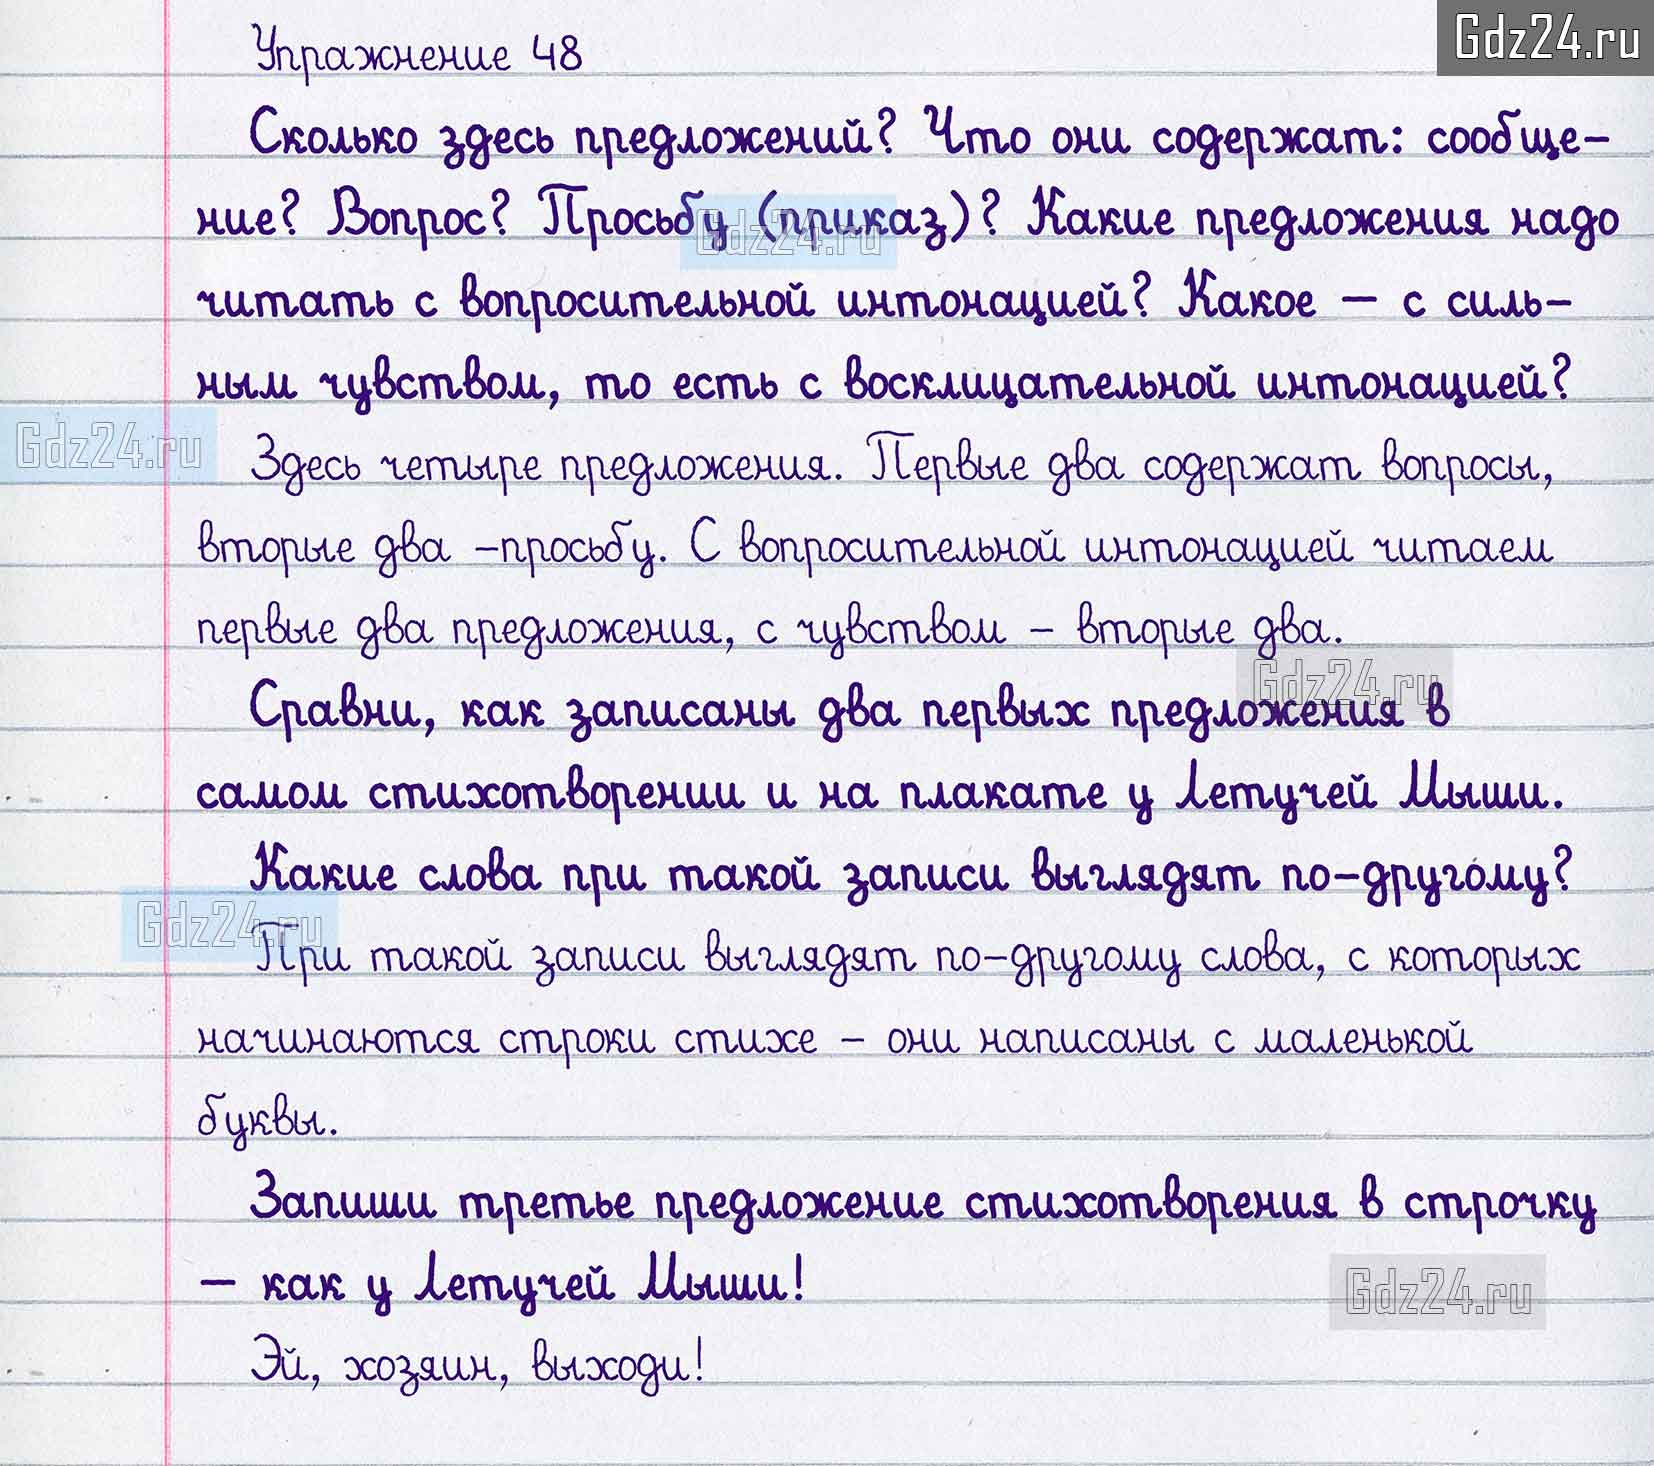 Gdz24.ru
Упражнение 48
Сколько здесь предложений? Что они содержат: сообще-
ние? Вопрос? Просьбу (приказ)? Какие предложения надо
Gdz24.ru
читать с вопросительной интонацией? Какое – с силь-
ным чувством, то есть с восклицательной интонацией?
Gdz24.ru
Здесь четыре предложения. Первые два содержат вопросы,
вторые два –просьбу. С вопросительной интонацией читаем
первые два предложения, с чувством – вторые два.
Gdz24.ru
Сравни, как записаны два первых предложения в
самом стихотворении и на плакате у Летучей Мыши.
Какие слова при такой записи выглядят по-другому?
Gdz24.ru
При такой записи выглядят по-другому слова, с которых
начинаются строки стихе – они написаны с маленькой
буквы.
Запиши третье предложение стихотворения в строчку
– как у Летучей Мыши!
Gdz24.ru
Эй, хозяин, выходи!